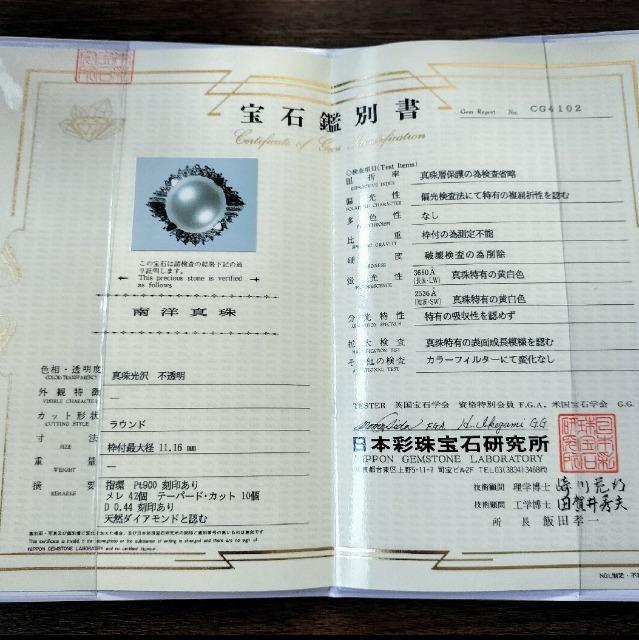 宝石鑑別書
Certificate of Gem Identification
Gem Report No. CG4102
この宝石は諸検査の結果下記の通
り証明します。
This precious stone is verified
as follows
南洋真珠
色相・透明度 真珠光沢 不透明
COLOR/TRANSPARENCY
外観特徴 —
VISIBLE CHARACTER
カット形状 ラウンド
CUTTING STYLE
寸法 枠付最大径 11.16 mm
SIZE
重量 —
WEIGHT
摘要 指環 Pt900 刻印あり
REMARKS
メレ 42個 テーパード・カット 10個
D 0.44 刻印あり
天然ダイアモンドと認む
NIPPON GEMSTONE LABORATORY and no certified labour.
◇検査項目(Test Items)
屈折率 真珠層保護の為検査省略
REFRACTIVE INDEX
偏光性 偏光検査法にて特有の複屈折性を認む
POLARIZED CHARACTER
多色性 なし
比重 枠付の為測定不能
硬度 破壊検査の為削除
蛍光性 3650Å 真珠特有の黄白色
(長波-LW)
2536Å 真珠特有の黄白色
(短波-SW)
分光特性 特有の吸収性を認めず
ABSORPTION SPECTRUM
拡大検査 真珠特有の表面成長模様を認む
その他の検査 カラーフィルターにて変化なし
ADDITIONAL TEST
TESTER 英国宝石学会 資格特別会員 F.G.A. 米国宝石学会 G.G.
F.G.A. H. Ikegami G.G.
日本彩珠宝石研究所
NIPPON GEMSTONE LABORATORY
東京都台東区上野5-11-7 司宝ビル2F TEL.03(3834)3468㈹
日本彩珠宝石研究所
技術顧問 理学博士
技術顧問 工学博士 田賀井秀夫
所長 飯田孝一